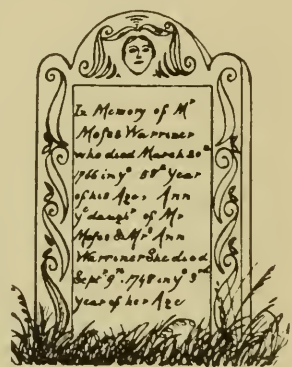 In Memory of Mr
Moses Warriner
who died March 20th
1766 in ye 58th Year
of his Age, Ann
ye daughr of Mr
Moses & Mrs Ann
Warriner She died
Sept 9th. 1748 in ye 3rd
year of her Age